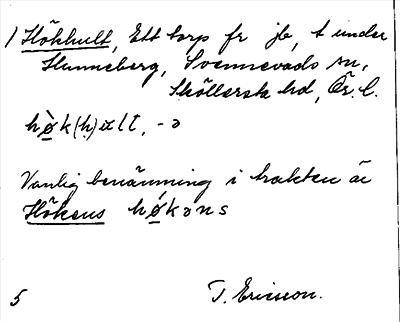 1 Hökhult, Ett torp fr jb, t under
Hunneberg, Svennevads sn,
Sköllersta hd, Ör. l.
hø̀k(h)ult, -ə
Vanlig benämning i trakten är
Hökens hø̀kəns
5 T. Ericson.